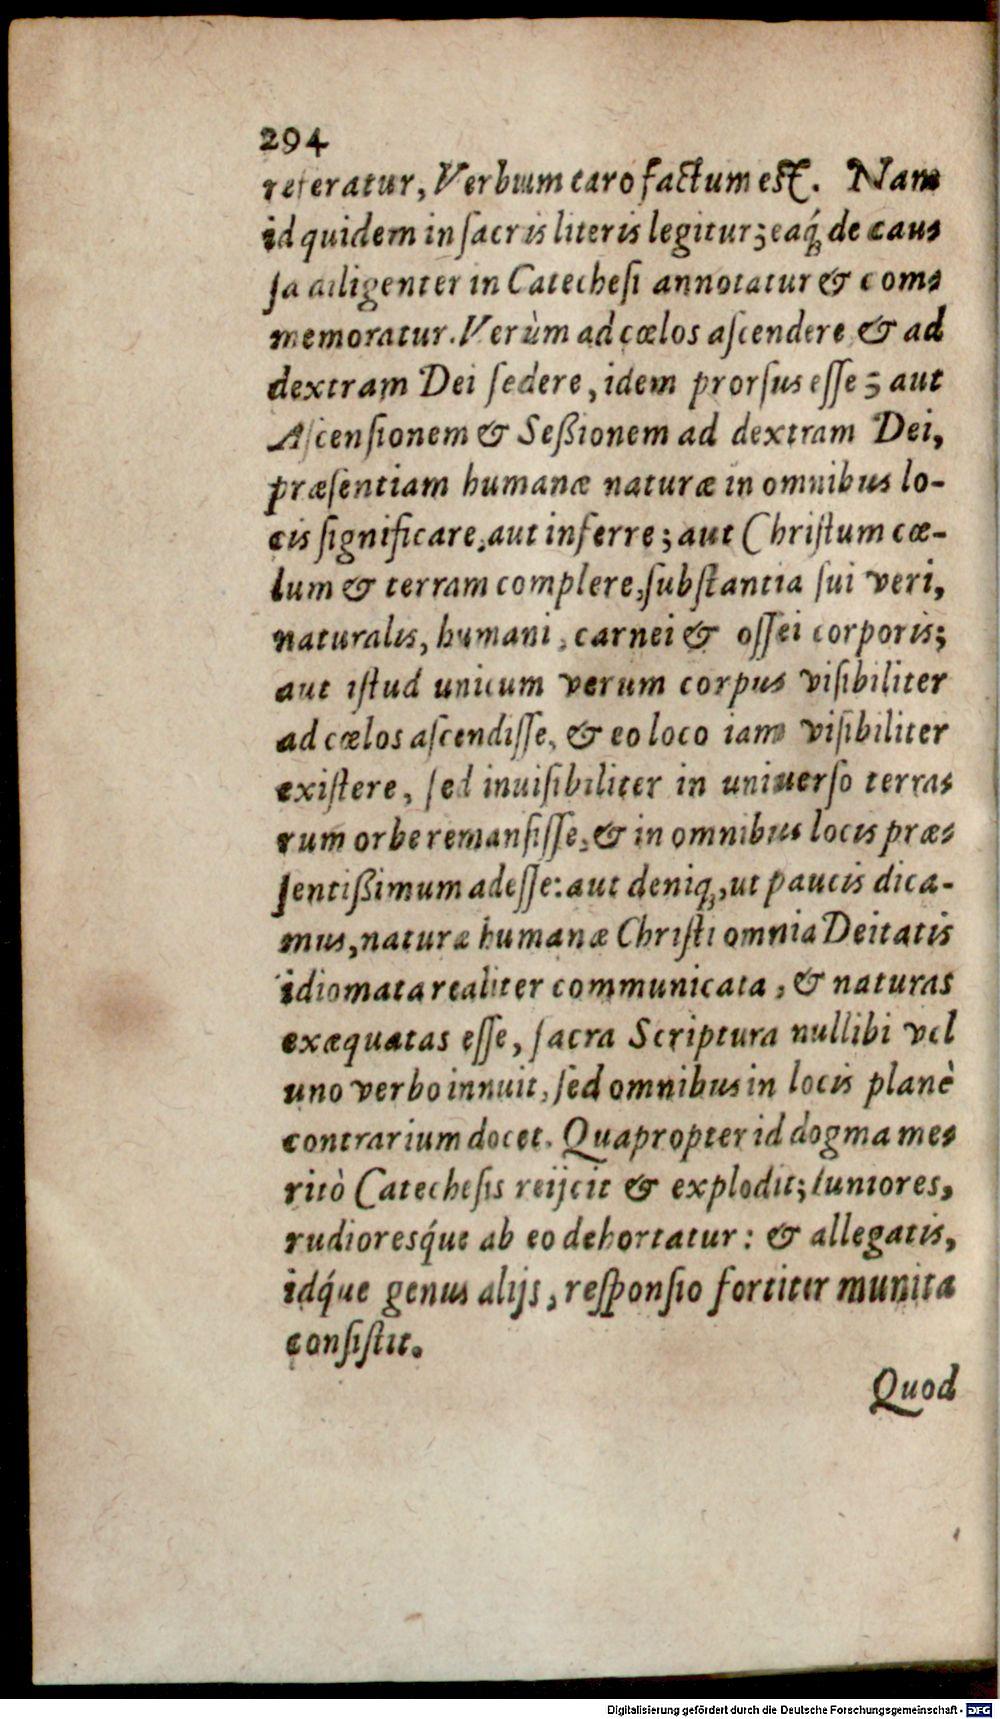 294
referatur, Verbum caro factum est. Nam
id quidem in ſacris literis legitur; eaq́; de cauſ⸗
ſa diligenter in Catecheſi annotatur & com⸗
memoratur. Verùm ad cœlos aſcendere & ad
dextram Dei ſedere, idem prorſus eſſe; aut
Aſcenſionem & Seßionem ad dextram Dei,
præſentiam humanæ naturæ in omnibus lo-
cis ſignificare, aut inferre; aut Chriſtum cæ-
lum & terram complere, ſubſtantia ſui veri,
naturalis, humani, carnei & oſſei corporis;
aut iſtud unicum verum corpus viſibiliter
ad cœlos aſcendiſſe, & eo loco iam viſibiliter
exiſtere, ſed inuiſibiliter in uniuerſo terra⸗
rum orbe remanſiſſe, & in omnibus locis præ⸗
ſentißimum adeſſe: aut deniq;, ut paucis dica-
mus, naturæ humanæ Chriſti omnia Deitatis
idiomata realiter communicata, & naturas
exæquatas eſſe, ſacra Scriptura nullibi vel
uno verbo innuit, ſed omnibus in locis planè
contrarium docet. Quapropter id dogma me⸗
ritò Catecheſis reijcit & explodit; Iuniores,
rudioresq́ue ab eo dehortatur: & allegatis,
idq́ue genus alijs, reſponſio fortiter munita
conſiſtit.
Quod
Digitalisierung gefördert durch die Deutsche Forschungsgemeinschaft - DFG